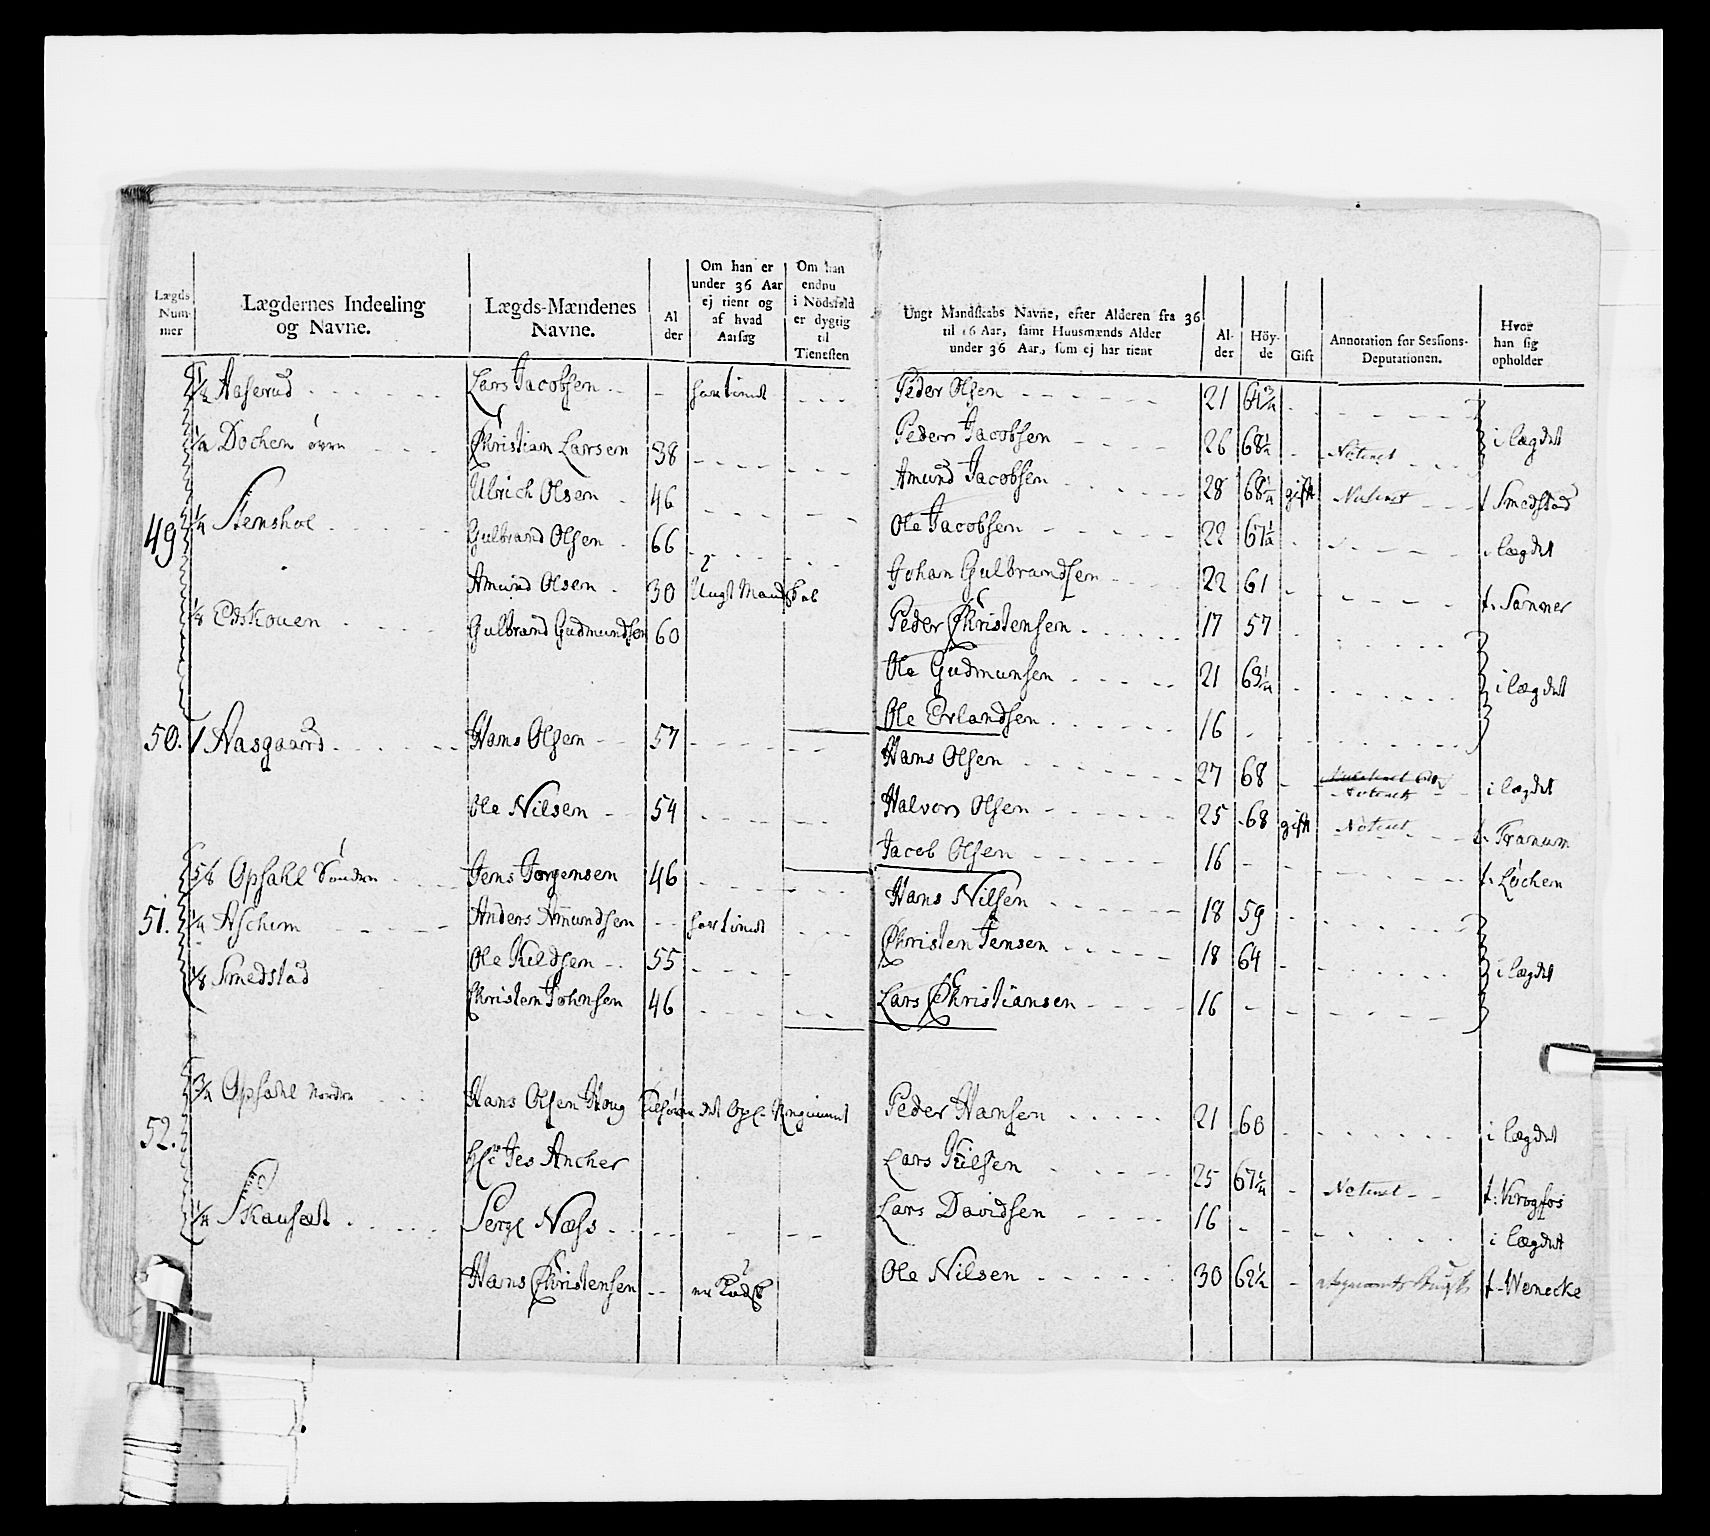 Lægds Num-mer | Lægdernes Indeeling og Navne. | Lægds-Mændenes Navne. | Al der | Om han er under 36 Aar ej tient og af hvad Aarsag | Om han endnu i Nödsfald er dygtig til Tienesten
1/8 Aaserud - - - Lars Jacobsen - - - har tient - - -
1/4 Dochen øvre - - - Christian Larsen 38 - - -
Ulrich Olsen - 46 - - -
49 1/4 Stenshol - - - Gulbrand Olsen - 66 - - -
Amund Olsen - 30 Ungt Mandskab
1/8 Edskouen - - - Gulbrand Gudmundsen 60
50. 1 Aasgaard - - - Hans Olsen - - 57 - - -
Ole Nilsen - - 54 - - -
5/8 Opsahl Søndre - - - Jens Jørgensen 46 - - -
51. 1/4 Aschim - - - Anders Amundsen - - har tient - - -
1/8 Smedstad Ole Kildsen - - 55 - - -
Christen Johnsen 46 - - -
3/4 Opsahl Nordre - - - Hans Olsen Houg det Opl: Regiment
52. Jes Ancher
1/4 Skausæt - - - Næss - - -
Hans Christensen - - er
Ungt Mandskabs Navne, efter Alderen fra 36 til 16 Aar, samt Huusmænds Alder under 36 Aar, som ej har tient | Al-der | Höy-de | Gift | Annotation for Sessions-Deputationen. | Hvor han sig opholder
Peder Olsen - - - 21 64 3/4 - - -
Peder Jacobsen - - - 26 68 1/2 - Noteret - - - i lægdet
Amund Jacobsen - - - 28 68 1/4 gift Noteret - - - f Smedstad
Ole Jacobsen - - - 22 67 1/2 - - - i lægdet
Johan Gulbrandsen - - 22 61 - - - f. Sanner
Peder Christensen - - - 17 57 - - -
Ole Gudmunsen - - - 21 63 1/4 - - - i lægdet
Ole Erlandsen - - - 16 - - -
Hans Olsen - - - 27 68 - Noteret - i lægdet
Halvor Olsen - - - 25 68 gift Noteret - - f. Franum
Jacob Olsen - - - 16 - - - f. Lochen
Hans Nilsen - - - 18 59 - - -
Christen Jensen - - - 18 64 - - - i lægdet
Lars Christiansen - - - 16 - - -
Peder Hansen - - - 21 60 - - - i lægdet
Lars - - - 25 67 1/4 - Noteret - - f: Krogfos
Lars Davidsen - - - 16 - - - i lægdet
Ole Nilsen - - - 30 62 1/2 - f. Wenecke